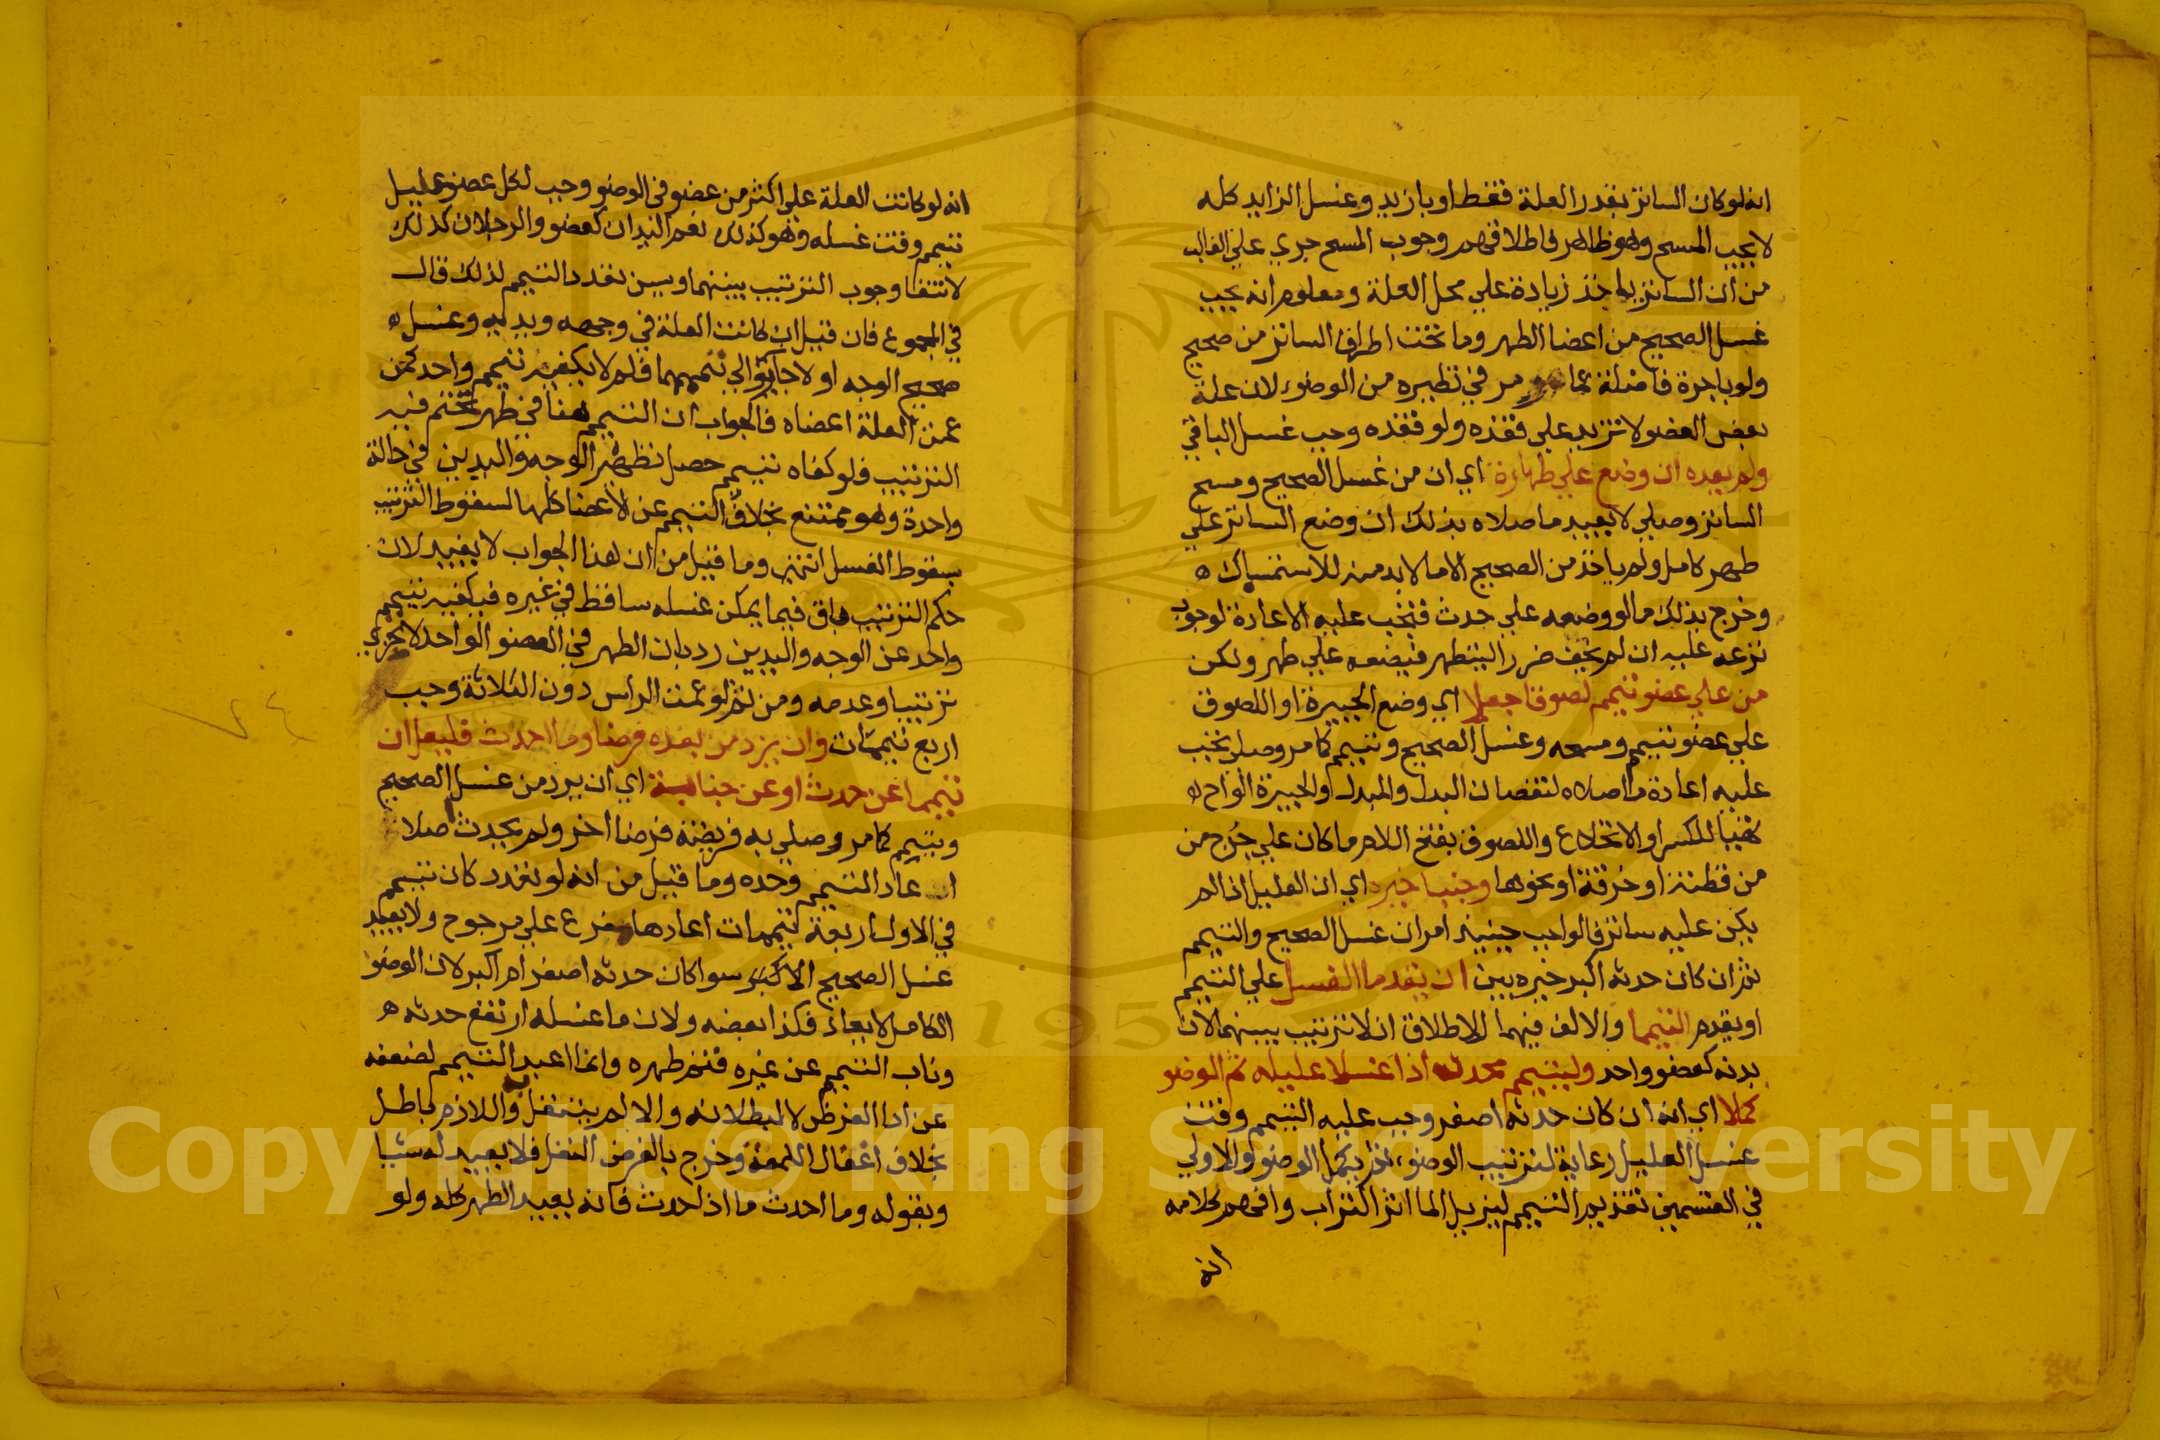 انه لو كان الساتر بقدر العلة فقط او بازيد وغسل الزايد كله
لا يجب المسح وهو ظاهر فاطلاقهم وجوب المسح جري علي الغالب
من ان الساتر ياخذ زيادة علي محل العلة ومعلوم انه يجب
غسل الصحيح من اعضا الطهر وما تحت اطراف الساتر من صحيح
ولو باجرة فاضلة عما مر في نظيره من الوضوء لان علة
بعض العضو لا تزيد علي فقده ولو فقده وجب غسل الباقي
ولم يعده ان وضع علي طهارة اي ان من غسل الصحيح ومسح
الساتر وصلي لا يعيد ما صلاه بذلك ان وضع الساتر علي
طهر كامل ولم ياخذ من الصحيح الا ما لا بد منه للاستمساك ه
وخرج بذلك ما لو وضعه علي حدث فتجب عليه الاعادة لوجوب
نزعه عليه ان لم يخف ضررا ليتطهر فيضعه علي طهر ولكن
من علي عضو تيمم لصوقا جعلا اي وضع الجبيرة او اللصوق
علي عضو تيمم ومسحه وغسل الصحيح وتيمم كما مر وصلي تجب
عليه اعادة ما صلاه لنقصان البدل والمبدل والجبيرة الواح
تهيا للكسر او الانخلاع واللصوق بفتح اللام ما كان علي جرح من
من قطنة او خرقة او نحوها وجنبا خير اي ان العليل اذا لم
يكن عليه ساتر فالواجب حينيذ امران غسل الصحيح والتيمم
ثم ان كان حدثه اكبر خيره بين ان يقدما الغسل علي التيمم
او يقدم التيمما والالف فيهما للاطلاق اذ لا ترتيب بينهما لان
بدنه كعضو واحد وليتيمم محدث اذا غسلا عليله ثم الوضو
كملا اي انه ان كان حدثه اصغر وجب عليه التيمم وقت
غسل العليل رعاية لترتيب الوضوء ثم يكمل الوضو والاولي
في القسمين تقديم التيمم ليزيل الما اثر التراب وافهم كلامه
انه
انه لو كانت العلة علي اكثر من عضو في الوضو وجب لكل عضو عليل
تيمم وقت غسله وهو كذلك نعم اليدان كعضو والرجلان كذلك
لانتفا وجوب الترتيب بينهما ويسن تعدد التيمم لذلك قال
في المجموع فان قيل ان كانت العلة في وجهه ويديه وغسل
صحيح الوجه اولا جاز توالي تيممهما فلم لا يكفيه تيمم واحد كمن
عمت العلة اعضاه فالجواب ان التيمم هنا في طهر تحتم فيه
الترتيب فلو كفاه تيمم حصل تطهير الوجه واليدين في حالة
واحدة وهو ممتنع بخلاف التيمم عن الاعضا كلها لسقوط الترتيب
بسقوط الغسل انتهي وما قيل من ان هذا الجواب لا يفيد لان
حكم الترتيب باق فيما يمكن غسله ساقط في غيره فيكفيه تيمم
واحد عن الوجه واليدين رد بان الطهر في العضو الواحد لا يجزي
ترتيبا وعدمه ومن ثم لو عمت الراس دون الثلاثة وجب
اربع تيممات وان يرد من بعده فرضا وما احدث فليصل ان
تيمما عن حدث او عن جنابة اي ان يرد من غسل الصحيح
وتيمم كما مر وصلي به فريضة فرضا اخر ولم يحدث صلا
ان عاد التيمم وحده وما قيل من انه لو تعدد كان تيمم
في الاولي اربعة تيممات اعادها مفرع علي مرجوح ولا يعيد
غسل الصحيح الاكبر سوا كان حدثه اصغر ام اكبر لان الوضو
الكامل لا يعاد فكذا بعضه ولان ما غسله ارتفع حدثه ه
وناب التيمم عن غيره فتم طهره وانما اعيد التيمم لضعفه
عن ادا الفرض لا لبطلانه والا لم يتنفل واللازم باطل
بخلاف اغفال اللمعة وخرج بالفرض النفل فلا يعيد له شيا
وبقوله وما احدث ما اذا احدث فانه يعيد الطهر كله ولو